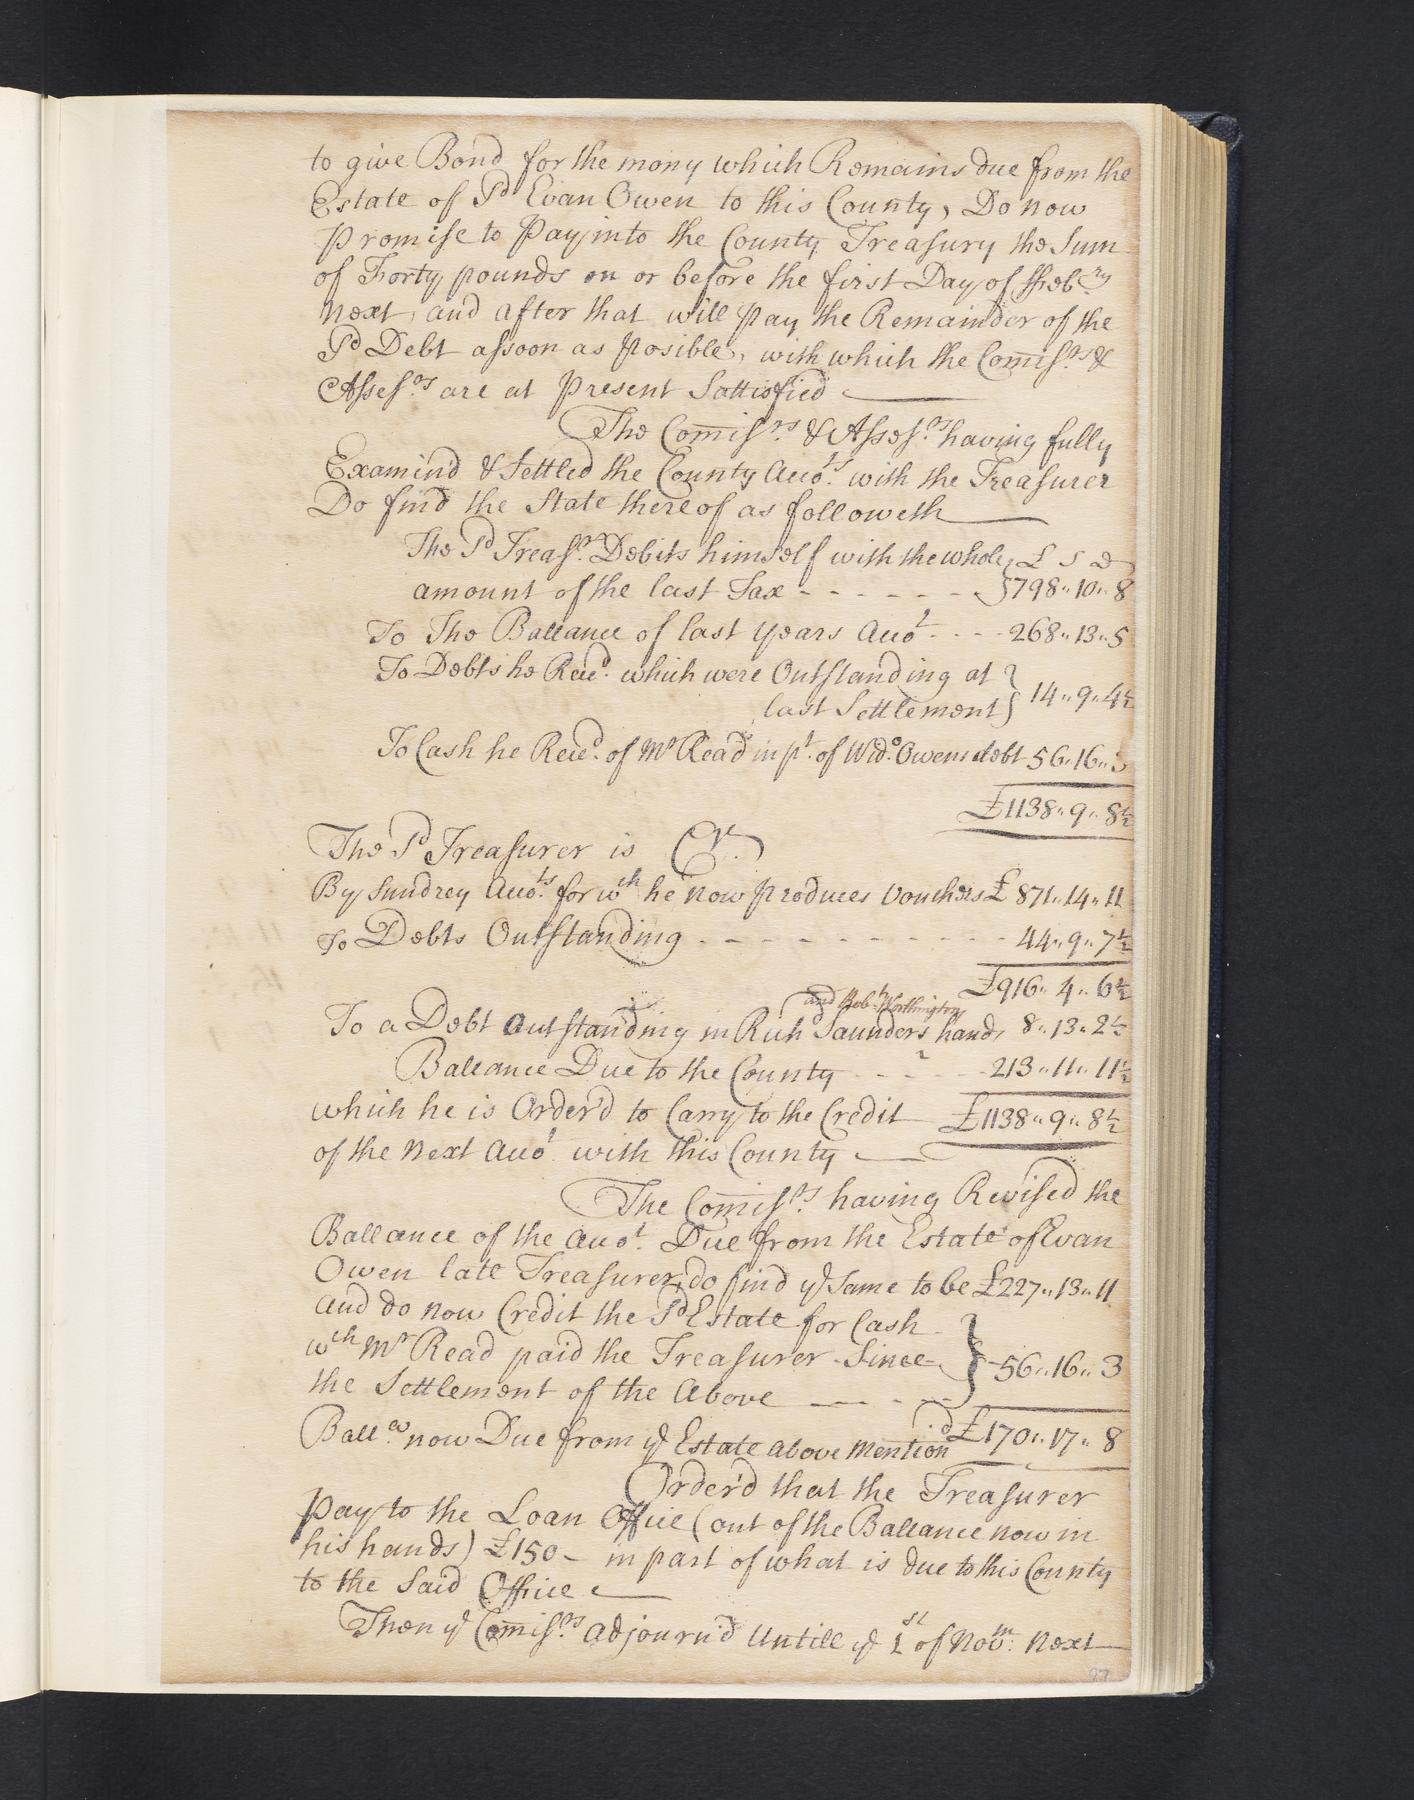 to give Bond for the mony which Remains due from the
Estate of Sd Evan Owen to this County, Do now
Promise to Pay into the County Treasury the Sum
of Forty pounds on or before the first Day of ffeb:ry
Next, and after that will pay the Remainder of the
Sd Debt assoon as Posible, with which the Comiss:rs &
Assess:ors are at Present Sattisfied
The Comiss:rs & Assess:ors having fully
Examin'd & Settled the County Acco:ts with the Treasurer
Do find the State thereof as followeth
The Sd Treas:r Debits himself with the whole } £ S D
amount of the last Tax - - - - - - } 798,, 10,, 8
To The Ballance of last Years Acco:t - - - 268,, 13,, 5
To Debts he Rece:d which were Outstanding at }
last Settlement } 14,, 9,, 4½
To Cash he Rece:d of Mr Read in p:t of Wid:o Owens debt 56,, 16,, 3
£1138,, 9,, 8½
The Sd Treasurer is Cr.
By Sundrey Acco:ts for wch he now produces Vouchers £ 871,, 14,, 11
To Debts Outstanding - - - - - - - - 44,, 9,, 7½
£916,, 4,, 6½
and Rob:t Worthington
To a Debt Outstanding in Richd Saunders hands 8,, 13,, 2½
Ballance Due to the County - - - - 213,, 11,, 11½
which he is Order'd to Carry to the Credit £1138,, 9,, 8½
of the Next Acco:t with this County
The Comiss:rs having Revised the
Ballance of the Acco:t Due from the Estate of Evan
Owen late Treasurer, do find ye Same to be £227,, 13,, 11
and do now Credit the Sd Estate for Cash
wch Mr Read paid the Treasurer Since } 56,, 16,, 3
the Settlement of the Above
Ball:ce now Due from ye Estate above Mention'd £170,, 17,, 8
Order'd that the Treasurer
Pay to the Loan Office (out of the Ballance now in
his hands) £150 - in part of what is due to this County
to the Said Office
Then ye Comiss:rs adjourn'd Untill ye 1st of Nov:m Next
27